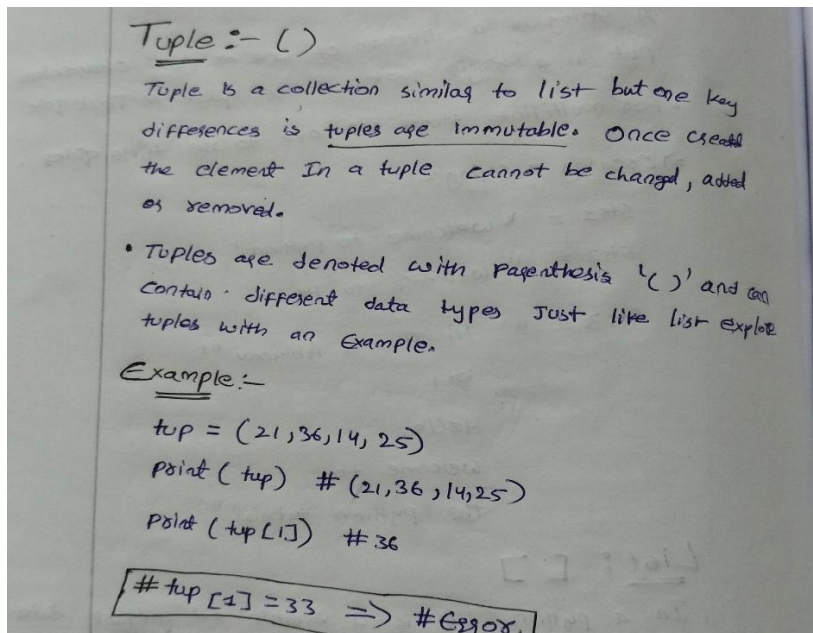 Tuple :- ()
Tuple is a collection similar to list but one key
differences is tuples are immutable. Once created
the element In a tuple cannot be changed, added
or removed.
• Tuples are denoted with parenthesis '()' and can
contain different data types Just like list explore
tuples with an Example.
Example :-
tup = (21,36,14,25)
print (tup) # (21,36,14,25)
print (tup[1]) #36
# tup [1] = 33 => #Error.